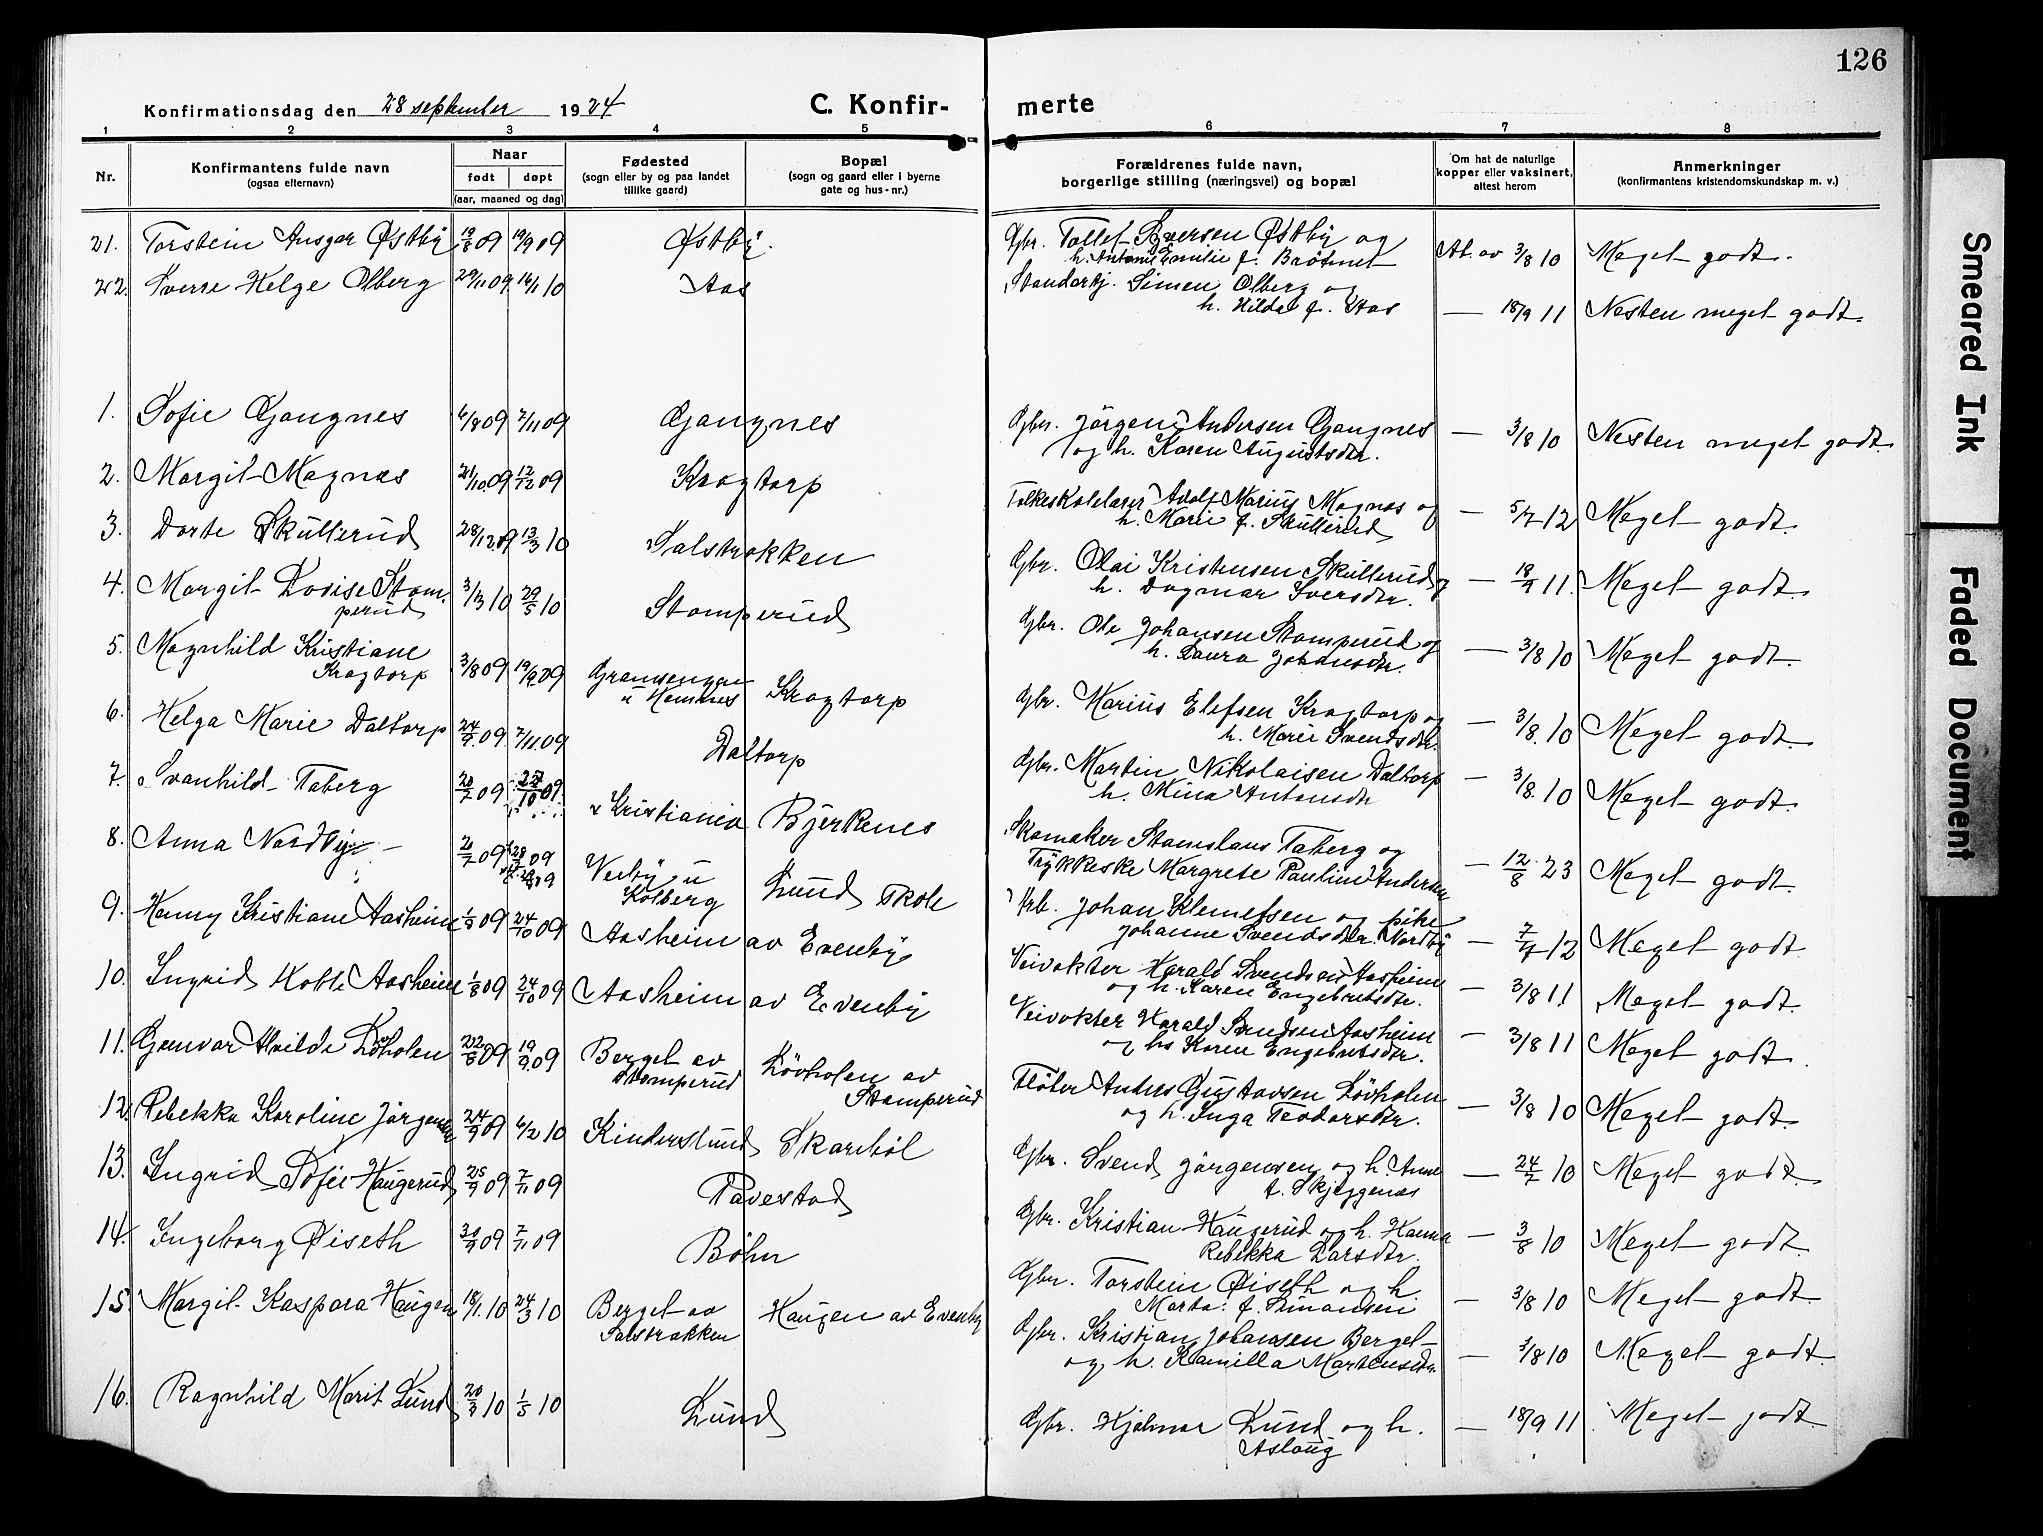 126
Konfirmationsdag den 28 september 1924
C. Konfir-
merte
1 2 3 4 5 6 7 8
Nr.
Konfirmantens fulde navn
(ogsaa efternavn)
Naar
født døpt
(aar, maaned og dag)
Fødested
(sogn eller by og paa landet
tillike gaard)
Bopæl
(sogn og gaard eller i byerne
gate og hus-nr.)
Forældrenes fulde navn,
borgerlige stilling (næringsvei) og bopæl
Om hat de naturlige
kopper eller vaksinert,
attest herom
Anmerkninger
(konfirmantens kristendomskundskap m. v.)
21. Torstein Ansgar Østby 19/8 09 19/9 09 Østby. Gbr. Tollef Syversen Østby og
h. Antonie Emilie f. Bråtnet At. av 3/8 10 Meget godt.
22. Sverre Helge Olberg 29/11 09 16/1 10 Aas Simen Olberg og
h. Hilda f. Aas — 18/9 11 Nesten meget godt.
1. Sofie Gangnes 6/8 09 7/11 09 Gangnes Gbr. Jørgen Andersen Gangnes
og h. Karen Augustsdtr. — 3/8 10 Nesten meget godt.
2. Margit Magnas 21/10 09 12/12 09 Krogtorp Folkeskolelærer Adolf Marius Magnas og
h. Marie f. Skullerud — 5/7 12 Meget godt.
3. Dorte Skullerud 28/12 09 13/3 10 Salstrokken Gbr. Olai Kristensen Skullerud og
h. Dagmar Iversdtr. — 18/9 11. Meget godt.
4. Margit Lovise Stom-
perud 3/3 10 29/5 10 Stomperud Gbr. Ole Johansen Stomperud og
h. Laura Johansdtr. — 3/8 10 Meget godt.
5. Magnhild Kristiane
Krogtorp 3/8 09 19/9 09 u Hemnes Krogtorp Gbr. Marius Elefsen Krogtorp og
h. Marie Svendsdtr. — 3/8 10 Meget godt.
6. Helga Marie Daltorp 24/9 09 7/11 09 Daltorp Gbr. Martin Nikolaisen Daltorp
h. Mina Antonsdtr — 3/8 10 Meget godt.
7. Svanhild Taberg 20/7 09 10 09 Kristiania Bjerkenes Skomaker Stanislaus Taberg og
Margrete Pauline Andersen — 12/8 23 Meget godt.
8. Anna Nordby 2/7 09 Vestby u
Kolberg Lund Skole Arb. Johan Klemetsen og pike
Johanne Svendsdtr. Nordby — 7/7 12 Meget godt.
9. Hanny Kristiane Aasheim 1/8 09 24/10 09 Aasheim av Evenby Veivokter Harald Svendsen Aasheim
og h. Karen Engebretsdtr. — 3/8 11 Meget godt.
10. Ingrid Aasheim 1/8 09 24/10 09 Aasheim av Evenby Veivokter Harald Svendsen Aasheim
og h. Karen Engebretsdtr. — 3/8 11 Meget godt.
11. Gunvor Alvilde Løvholen 22/8 09 19/9 09 Berget av
Stomperud Løvholen av
Stomperud Fløter Andres Gustavsen Løvholen
og h. Inga Teodorsdtr. — 3/8 10 Meget godt.
12. Rebekka Karoline Jørgensen 24/9 09 6/2 10 Kinderslund Skarebøl Gbr. Svend Jørgensen og h. Anne
f. Skjeggenæs — 24/7 10 Meget godt.
13. Ingrid Sofie Haugerud 25/9 09 7/11 09 Tavestad Gbr. Kristian Haugerud og h. Hanna
Rebekka Larsdtr. — 3/8 10 Meget godt.
14. Ingeborg Øiseth 30/9 09 7/11 09 Bøhn Gbr. Torstein Øiseth og h.
Marta f. Simonsen — 3/8 10 Meget godt.
15. Margit Kaspara Haugen 18/1 10 24/3 10 Berget av
Salstrokken Haugen av Evenby Gbr. Kristian Johansen Berget
og h. Kamilla Martensdtr. — 3/8 10 Meget godt.
16. Ragnhild Marit Lund 20/3 10 1/5 10 Lund Gbr. Hjalmar Lund og h.
Aslaug — 18/9 11 Meget godt
Smeared Ink
Faded Document